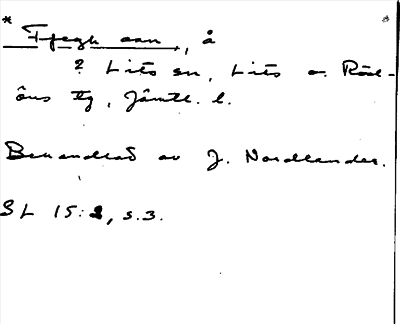 * Fjegh aan, å *
? Lits sn, Lits o. Röd-
öns tg, Jämtl. l.
Behandlad av J. Nordlander.
SL 15:2, s. 3.